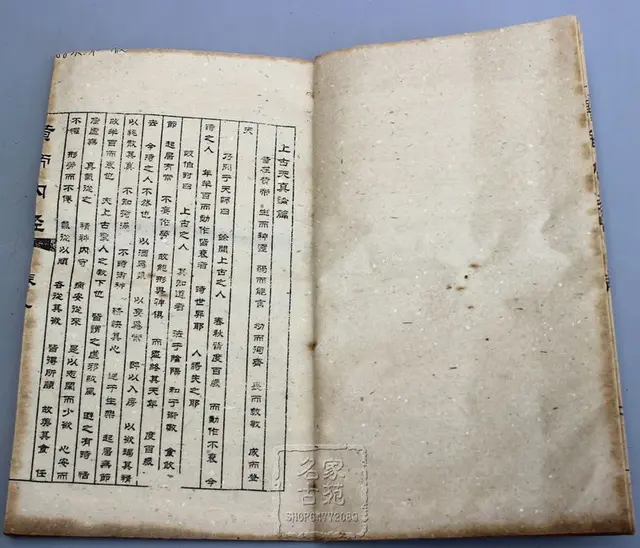 上古天真論篇
昔在黃帝 生而神靈 弱而能言 幼而徇齊 長而敦敏 成而登
天
乃問于天師曰 余聞上古之人 春秋皆度百歲 而動作不衰 今
時之人 年半百而動作皆衰者 時世異耶 人將失之耶
岐伯對曰 上古之人 其知道者 法于陰陽 和于術數 食飲
節 起居有常 不妄作勞 故能形與神俱 而盡終其天年 度百歲
去 今時之人不然也 以酒為漿 以妄為常 醉以入房 以欲竭其精
以耗散其真 不知持滿 不時御神 務快其心 逆于生樂 起居無節
故半百而衰也 夫上古聖人之教下也 皆謂之虛邪賊風 避之有時 恬
憺虛無 真氣從之 精神內守 病安從來 是以志閑而少欲 心安而
不懼 形勞而不倦 氣從以順 各從其欲 皆得所願 故美其食 任
黃帝內經
名家
古苑
SHOP64772083